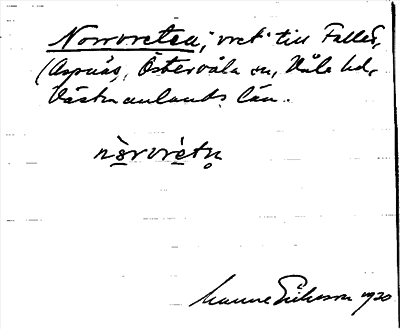 Norrvreten, "vret" till Fallet,
(Aspnäs, Östervåla sn, Våla hd,
Västmanlands län.
nòrvrètn̥
Manne Eriksson 1920